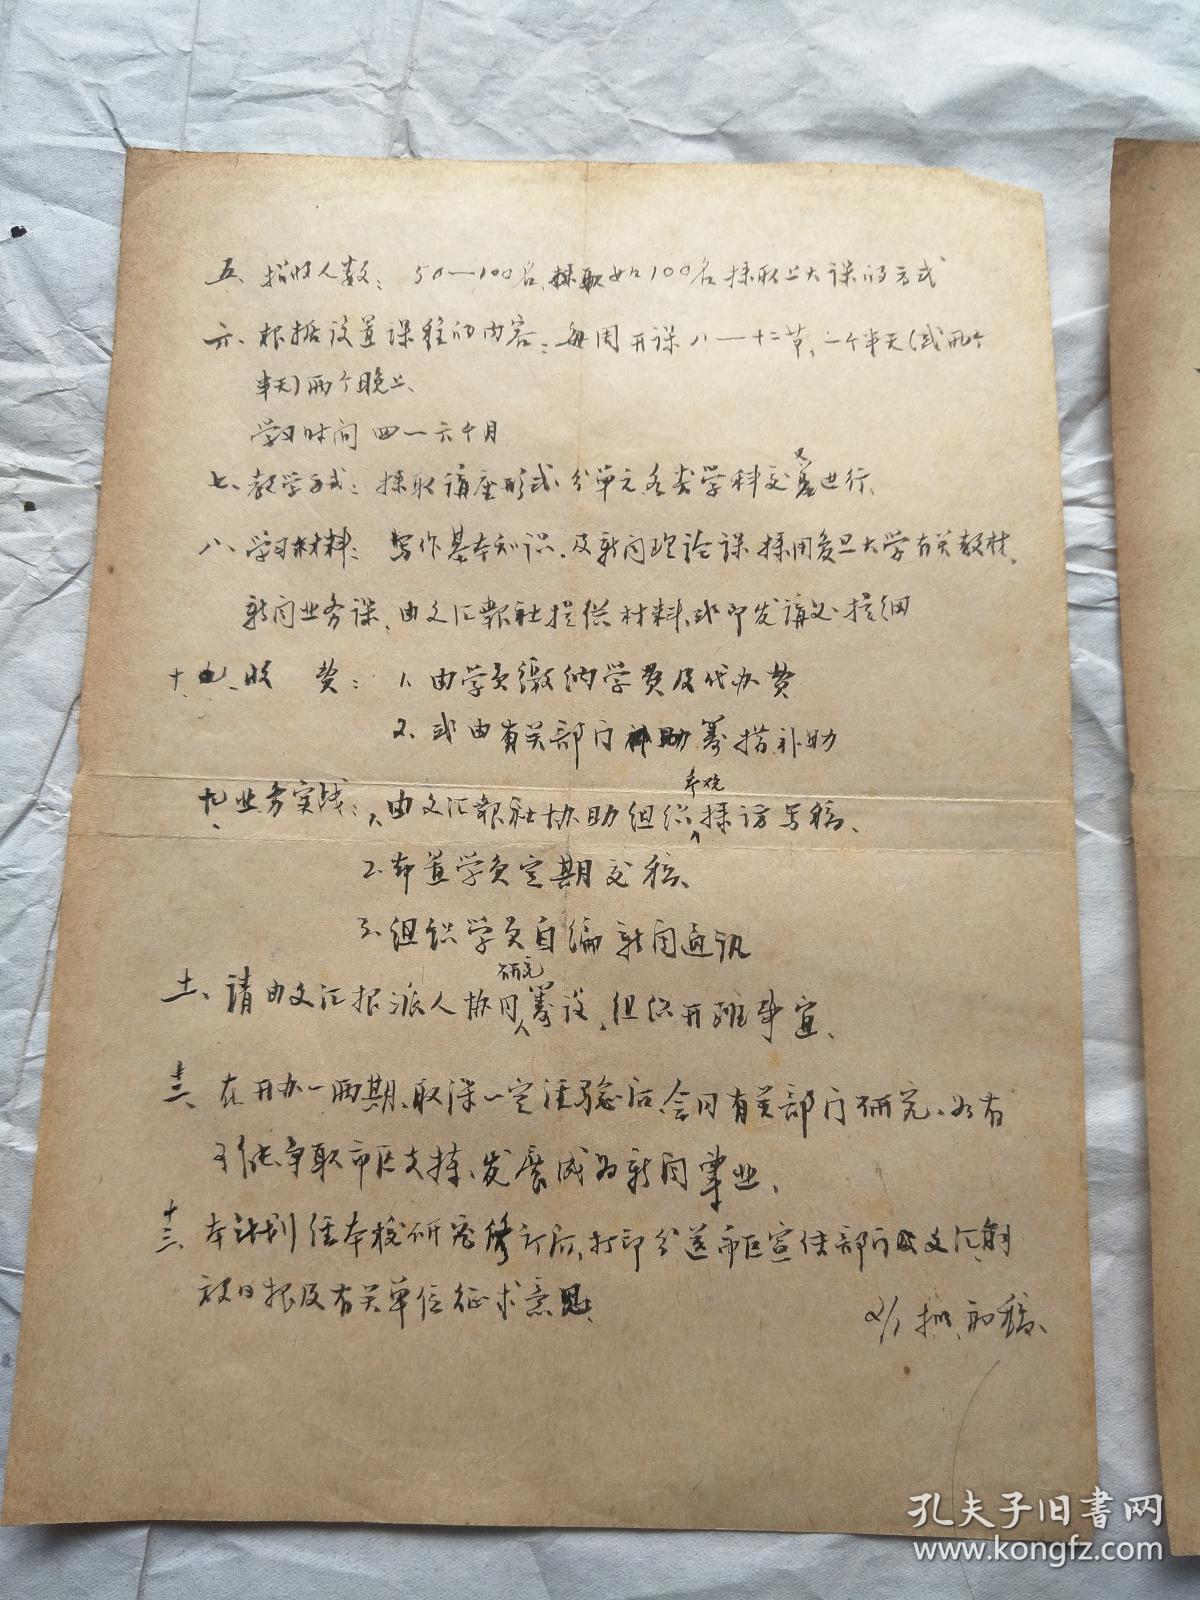 五、招收人数：50—100名，採取如100名採取上大课的方式
六、根据设置课程的内容：每周开课八—十二节，一个半天（或两个
半天）两个晚上、
学习时间 四—六个月
七、教学方式：採取講座形式，分单元各类学科交叉进行、
八、学习材料：写作基本知识、及新闻理论课採用复旦大学有关教材，
新闻业务课，由文汇報社提供材料或印发講义提纲
十、收 费：1、由学员缴纳学费及代办费
2、或由有关部门筹措补助
九、业务实战：1、由文汇報社协助组织采访写稿、
2、布置学员定期交稿、
3、组织学员自编新闻通讯
十一、请由文汇报派人协同研究筹设，组织开班事宜、
十二、在开办一两期、取得一定经验后，会同有关部门研究、如有
可能争取市区支持，发展成为新闻事业、
十三、本计划经本校研究修订后，打印分送市区宣传部门及文汇、解
放日报及有关单位征求意见
2/1 拟初稿、
孔夫子旧書网
www.kongfz.com